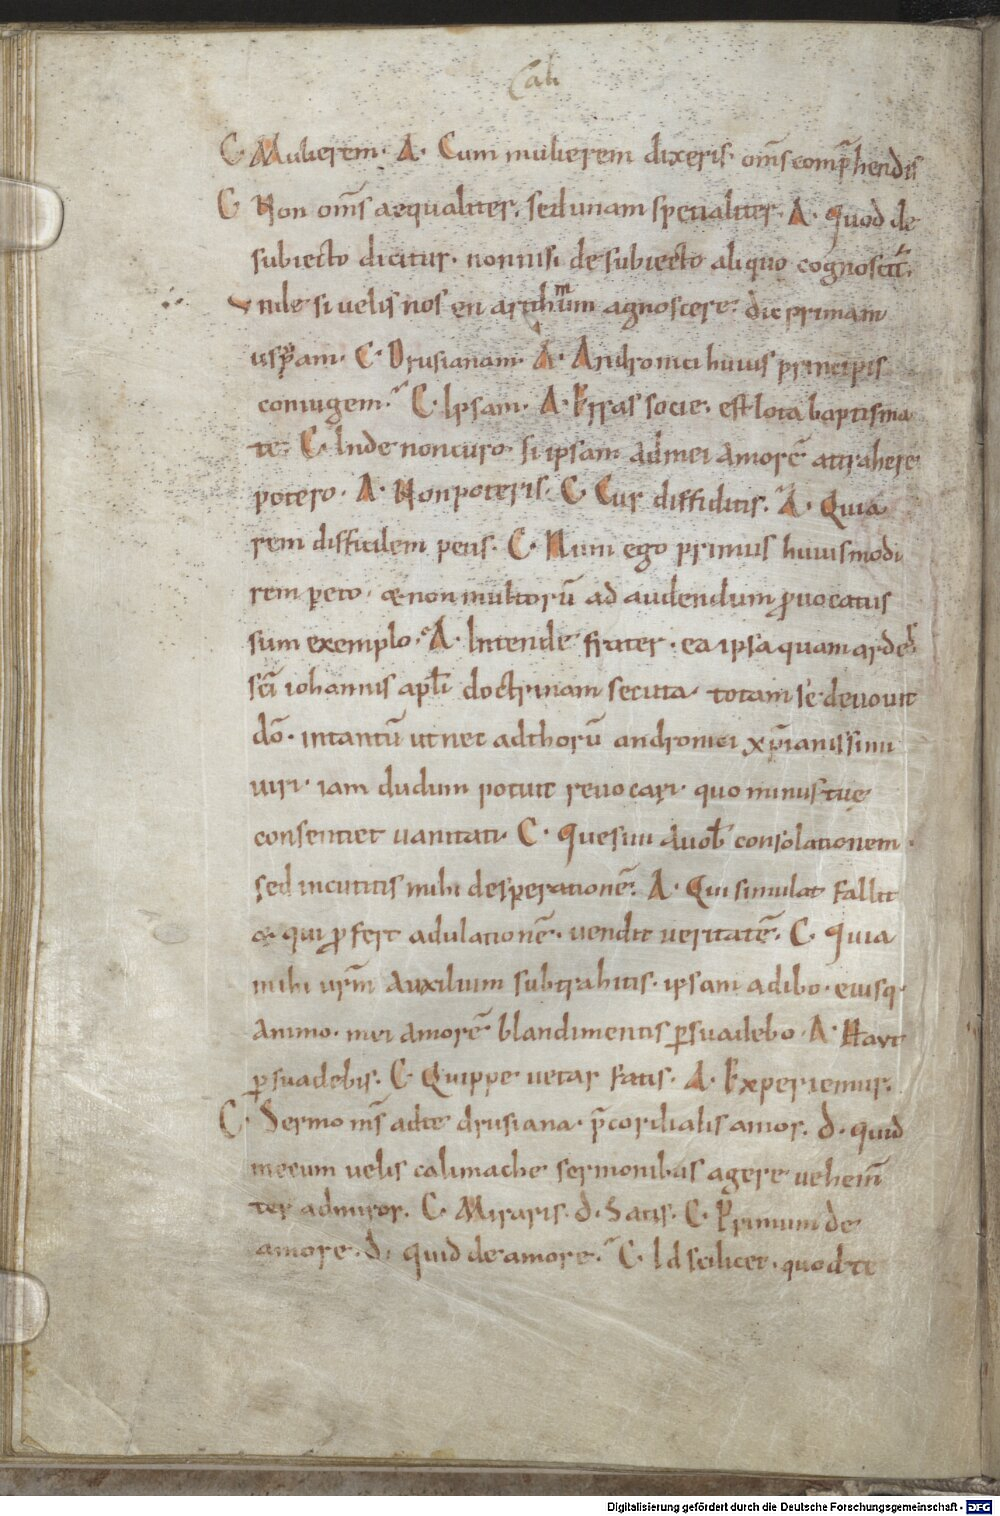 Cali
C· Mulierem· A· Cum mulierem dixeris· om̄s comp̄hendis
C· Non om̄s aequaliter· sed unam specialiter· A· quod de
subiecto dicitur· non nisi de subiecto aliquo cognoscit᷑·
Vnde si uelis nos en arithmum agnoscere· dic primam
usp̄am· C· Drusianam· A· Andronici huius principis
coniugem· C· Ipsam· A· Erras socie· est lota baptisma
te· C· Inde non curo· si ipsam ad mei amorē attrahere
potero· A· Non poteris· C· Cur diffiditis· A· Quia
rem difficilem petis· C· Num ego primus huiusmodi
rem peto· & non multorū ad audendum ꝓuocatus
sum exemplo· A· Intende frater· ea ipsa quam ardes
sc̄i iohannis apłi doctrinam secuta· totam se deuouit
dō· intantū ut nec ad thorū andronici xp̄ianissimi
uiri· iam dudum potuit reuocari· quo minus tuę
consentiet uanitati· C· Quesiui a uob̄ consolationem·
sed incutitis mihi desperationē· A· Qui simulat fallit
& qui ꝓfert adulationē· uendit ueritatē· C· Quia
mihi ur̄m auxilium subtrahitis· ipsam adibo· eiusq·
animo· mei amorē blandimentis ꝑsuadebo· A· Haut
ꝑsuadebis· C· Quippe uetar fatis· A· Experiemur·
C· Sermo m̄s ad te drusiana· p̄cordialis amor· d· quid
mecum uelis calimache sermonibus agere uehem̄
ter admiror· C· Miraris· d· Satis· C· Primum de
amore· d· quid de amore· C· Id scilicet· quod te
Digitalisierung gefördert durch die Deutsche Forschungsgemeinschaft - DFG